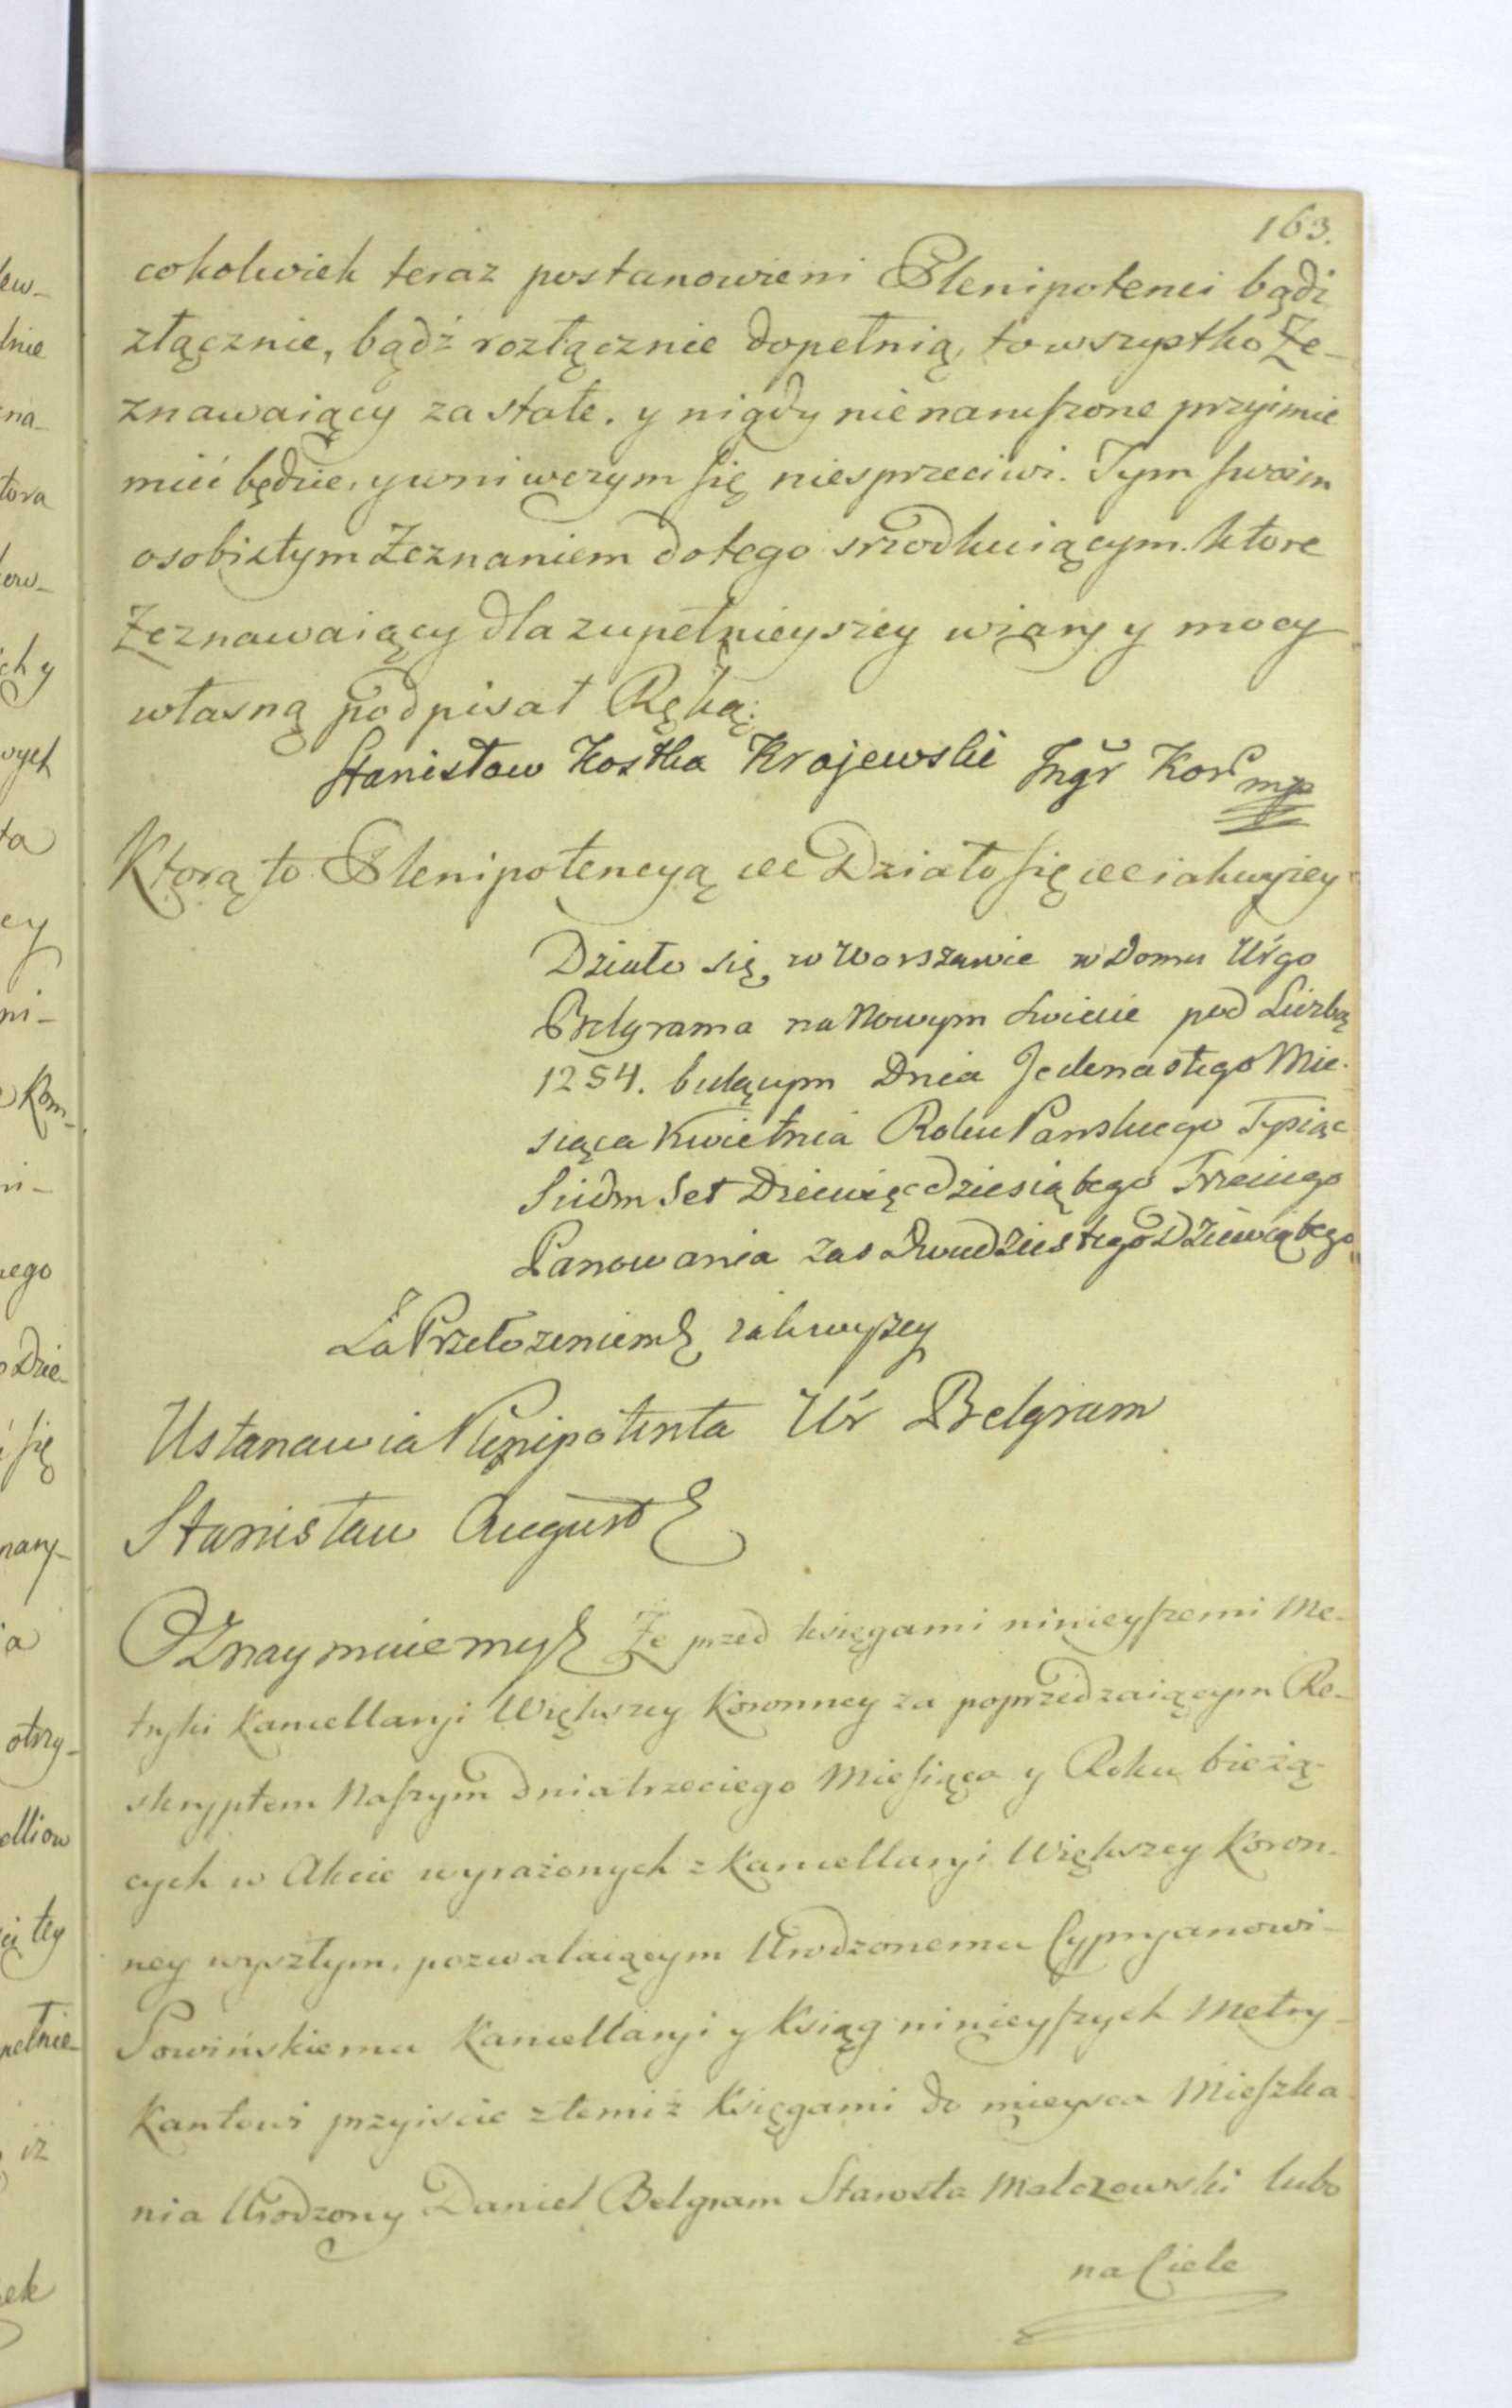 163.
cokolwiek teraz postanowieni Plenipotenci bądź
złącznie, bądź rozłącznie dopełnią, to wszystko Ze-
znawaiący za stałe. y nigdy nienaruszone przyimie
mieć będzie, y wniwczym się niesprzeciwi. Tym swoim
osobistym Zeznaniem dotego srzodkuiącym. ktore
Zeznawaiący dla zupełnieyszey wiary y mocy
własną podpisał Ręką:
Stanisław Kostka Krajewski Ingr Kor mp
Ktorą to Plenipotencyą etc Działo się etc iakwyżey
Działo się w Warszawie w Domu Urgo
Belgrama na Nowym Swiecie pod Liczbą
1254. będącym Dnia Jedenastego Mie-
siąca Kwietnia Roku Panskiego Tysiąc
Siedm Set Dziewięcdziesiątego Trzeciego
Panowania zas Dwudziestego Dziewiątego
Za Przełozeniem iakwyszey
Ustanawia Plenipotenta Ur Belgram
Stanisław August
Oznaymuiemy Ze przed księgami ninieyszemi Me-
tryki Kancellaryi Większey Koronney za poprzedzaiącym Re-
skryptem Naszym dnia trzeciego Miesiąca y Roku bieżą-
cych w Akcie wyrażonych z Kancellaryi Większey Koron-
ney wyszłym, pozwalaiącym Urodzonemu Cypryanowi
Sowińskiemu Kancellaryi y Ksiąg ninieyszych Metry-
kantowi przyiscie z temiż Księgami do mieysca Mieszka-
nia Urodzony Daniel Belgram Starosta Malczewski lubo
na Ciele